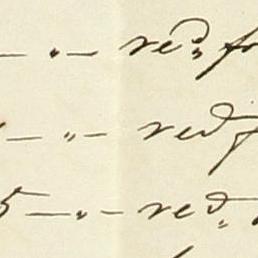 — " — red. fr
— " — red f
5 — " — red.